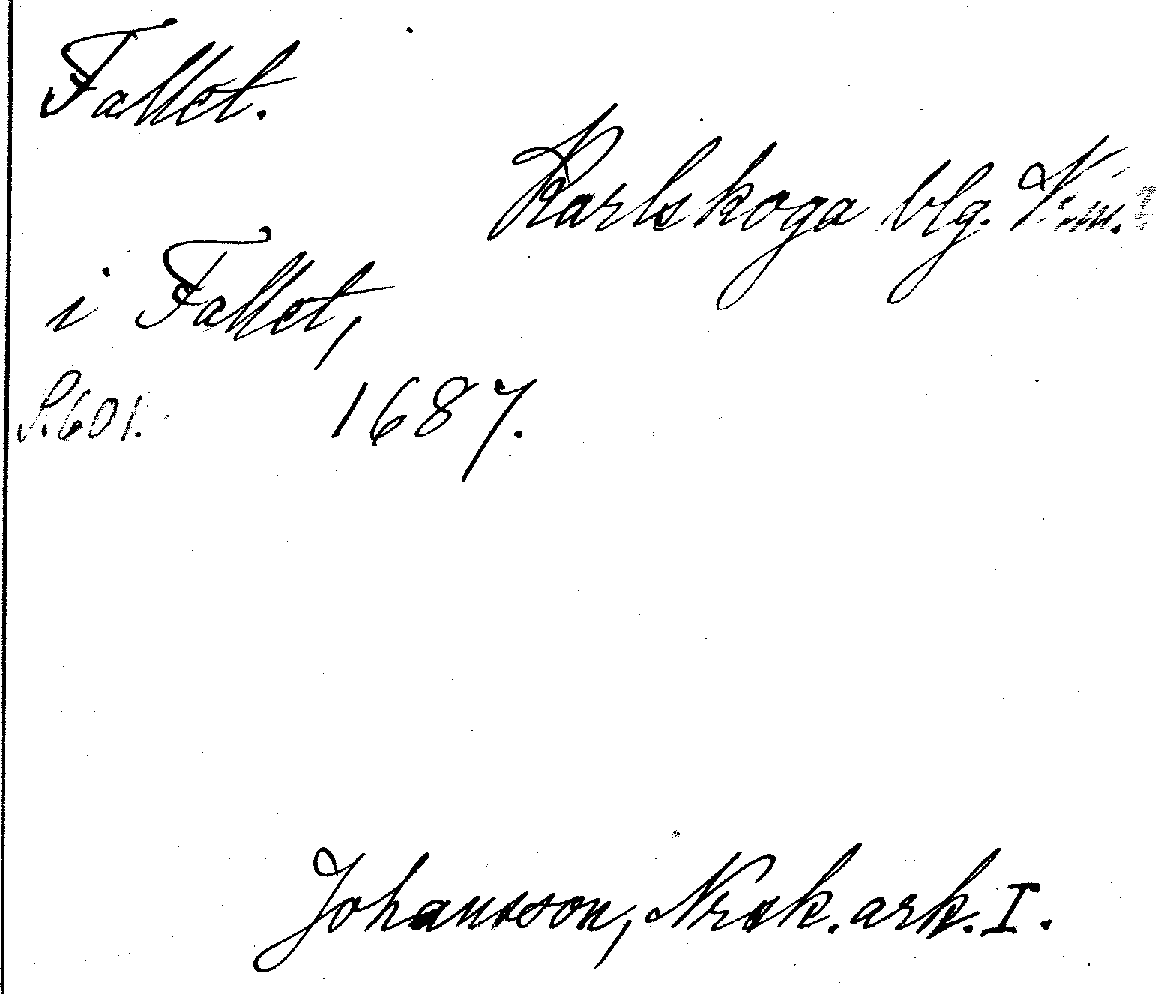 Fallet.
Karlskoga blg. V:m.
i Fallet,
S. 601. 1687.
Johansson, Nrsk. ark. I.